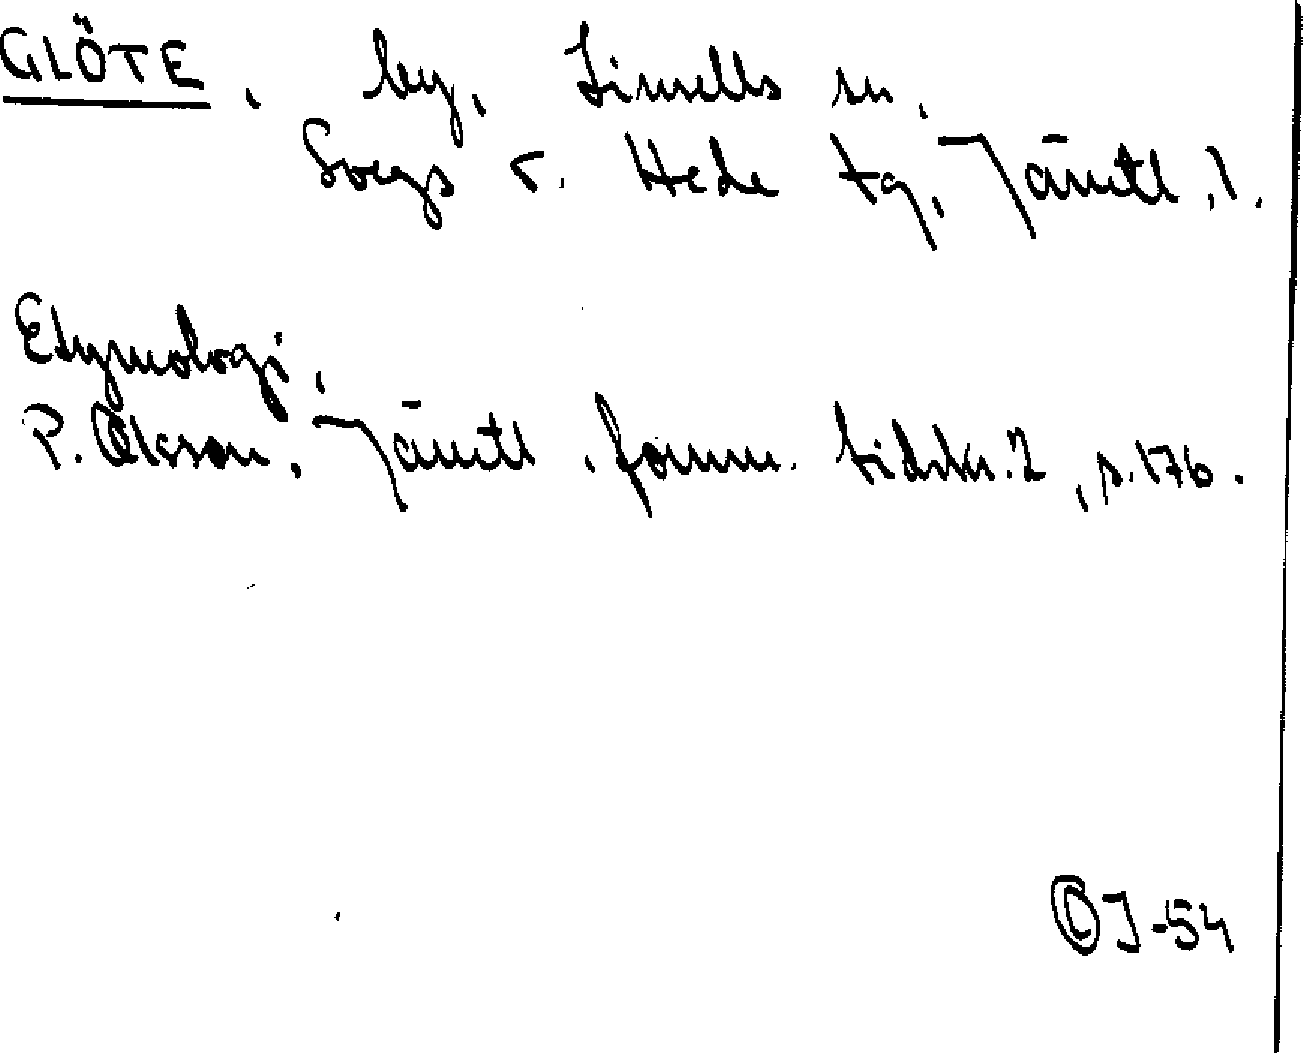 GLÖTE, by, Linsells sn,
Svegs o. Hede tg, Jämtl. l.
Etymologi,
P. Olsson, Jämtl. fornm. tidskr. 2, s. 176.
J-54